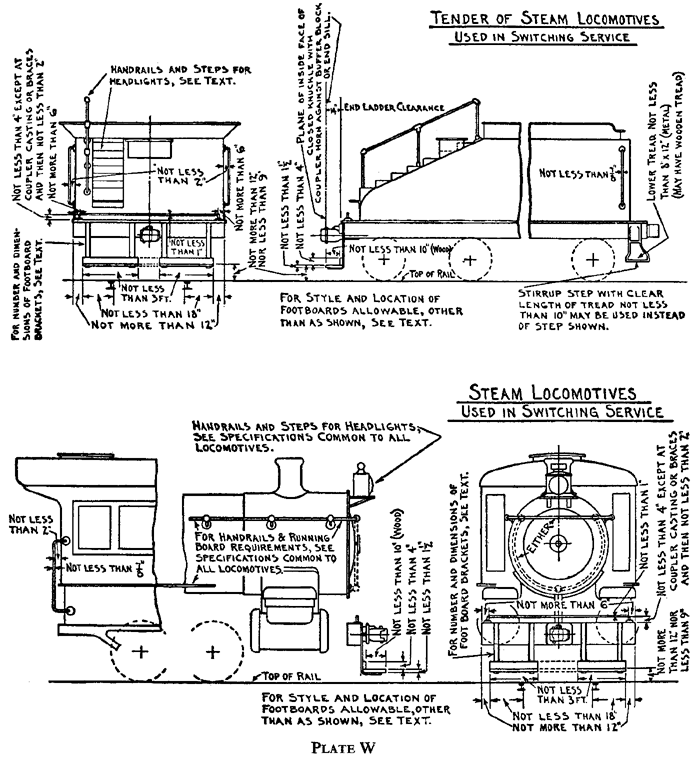 TENDER OF STEAM LOCOMOTIVES
USED IN SWITCHING SERVICE
HANDRAILS AND STEPS FOR
HEADLIGHTS, SEE TEXT.
NOT LESS THAN 4" EXCEPT AT
COUPLER CASTING OR BRACES
AND THEN NOT LESS THAN 2"
NOT MORE THAN 6"
NOT LESS
THAN 2"
NOT MORE THAN 6"
NOT MORE THAN 12"
NOR LESS THAN 9"
NOT LESS
THAN 1"
FOR NUMBER AND DIMEN-
SIONS OF FOOTBOARD
BRACKETS, SEE TEXT.
NOT LESS
THAN 3FT.
NOT LESS THAN 18"
NOT MORE THAN 12"
PLANE OF INSIDE FACE OF
CLOSED KNUCKLE WITH
COUPLER HORN AGAINST BUFFER BLOCK
OR END SILL.
END LADDER CLEARANCE
NOT LESS THAN 1½"
NOT LESS THAN 4"
NOT LESS THAN 10" (WOOD)
TOP OF RAIL
NOT LESS THAN ⅞"
LOWER TREAD NOT LESS
THAN 8"X12" (METAL)
(MAY HAVE WOODEN TREAD)
FOR STYLE AND LOCATION OF
FOOTBOARDS ALLOWABLE, OTHER
THAN AS SHOWN, SEE TEXT.
STIRRUP STEP WITH CLEAR
LENGTH OF TREAD NOT LESS
THAN 10" MAY BE USED INSTEAD
OF STEP SHOWN.
STEAM LOCOMOTIVES
USED IN SWITCHING SERVICE
HANDRAILS AND STEPS FOR HEADLIGHTS,
SEE SPECIFICATIONS COMMON TO ALL
LOCOMOTIVES.
NOT LESS
THAN 2"
NOT LESS THAN ⅞"
FOR HANDRAILS & RUNNING
BOARD REQUIREMENTS, SEE
SPECIFICATIONS COMMON TO
ALL LOCOMOTIVES.
NOT LESS THAN 10" (WOOD)
NOT LESS THAN 4"
NOT LESS THAN 1½"
TOP OF RAIL
FOR STYLE AND LOCATION OF
FOOTBOARDS ALLOWABLE, OTHER
THAN AS SHOWN, SEE TEXT.
FOR NUMBER AND DIMENSIONS OF
FOOT BOARD BRACKETS, SEE TEXT.
EITHER
NOT MORE THAN 6"
NOT LESS THAN 1"
NOT LESS THAN 4" EXCEPT AT
COUPLER CASTING OR BRACES
AND THEN NOT LESS THAN 2"
NOT MORE
THAN 12" NOR
LESS THAN 9"
NOT LESS
THAN 3FT.
NOT LESS THAN 18"
NOT MORE THAN 12"
PLATE W